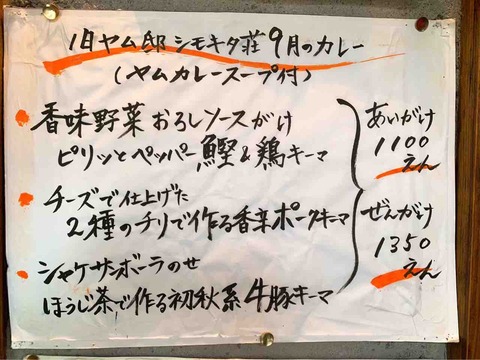 旧ヤム邸シモキタ荘9月のカレー
(ヤムカレースープ付)
香味野菜おろしソースがけ
ピリッとペッパー鰹&鶏キーマ
チーズで仕上げた
2種のチリで作る香辛ポークキーマ
シャケサンボーラのせ
ほうじ茶で作る初秋系牛豚キーマ
あいがけ
1100
えん
ぜんがけ
1350
えん